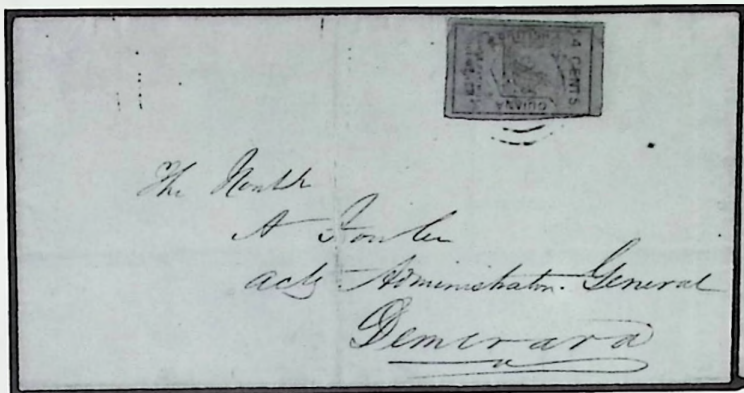 4 CENTS
GUIANA
The Honble
A Fowler
actg Administrator General
Demerara